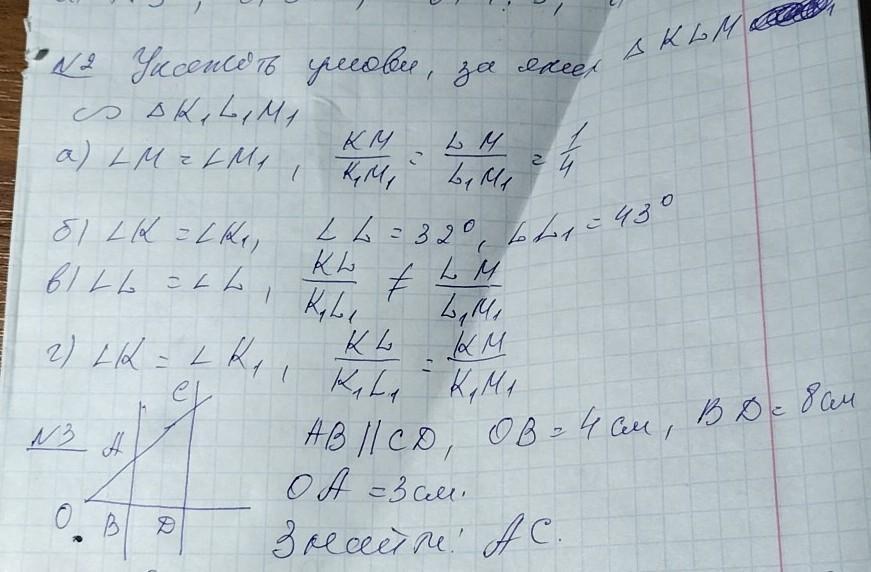 №2 Укажіть умови, за яких △KLM
∽ △K₁L₁M₁
а) ∠M = ∠M₁, KM/K₁M₁ = LM/L₁M₁ = 1/4
б) ∠K = ∠K₁, ∠L = 32°, ∠L₁ = 43°
в) ∠L = ∠L, KL/K₁L₁ ≠ LM/L₁M₁
г) ∠K = ∠K₁, KL/K₁L₁ = KM/K₁M₁
C
№3 A AB || CD, OB = 4 см, BD = 8 см
OA = 3 см.
O B D
Знайти: AC.